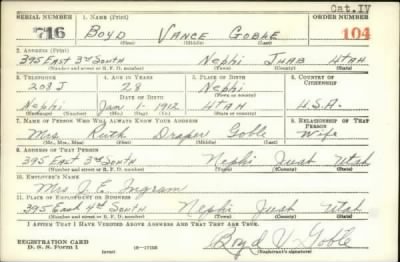 Cat. IV
SERIAL NUMBER 1. NAME (Print) ORDER NUMBER
716 BOYD VANCE GOBLE 104
(First) (Middle) (Last)
2. ADDRESS (Print)
395 EAST 3rd SOUTH NEPHI JUAB UTAH
(Number and street or R. F. D. number) (Town) (County) (State)
3. TELEPHONE 4. AGE IN YEARS 5. PLACE OF BIRTH 6. COUNTRY OF CITIZENSHIP
208 J 28 Nephi
DATE OF BIRTH (Town or county)
Nephi Jan 1- 1912 UTAH U.S.A.
(Exchange) (Mo.) (Day) (Yr.) (State or country)
7. NAME OF PERSON WHO WILL ALWAYS KNOW YOUR ADDRESS 8. RELATIONSHIP OF THAT PERSON
Mrs. Ruth Draper Goble Wife
(Mr., Mrs., Miss) (First) (Middle) (Last)
9. ADDRESS OF THAT PERSON
395 EAST 3rd SOUTH Nephi Juab Utah
(Number and street or R. F. D. number) (Town) (County) (State)
10. EMPLOYER'S NAME
Mrs J. E. Ingram
11. PLACE OF EMPLOYMENT OR BUSINESS
395 East 4th South Nephi Juab Utah
(Number and street or R. F. D. number) (Town) (County) (State)
I AFFIRM THAT I HAVE VERIFIED ABOVE ANSWERS AND THAT THEY ARE TRUE.
REGISTRATION CARD Boyd V Goble
D. S. S. Form 1 (over) (Registrant's signature)